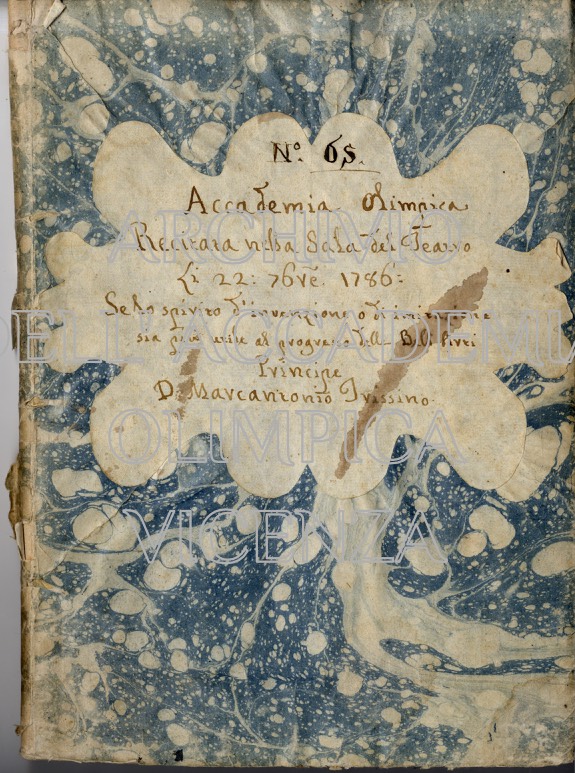 Nº. 65.
Accademia Olimpica
Recitata nella Sala del Teatro
Li 22: 7bre. 1786:
Se lo spirito d'invenzione o d'imitazione
sia più utile al progresso delle Belle Arti
Principe
D. Marcantonio Trissino.
ARCHIVIO
DELL'ACCADEMIA
OLIMPICA
VICENZA